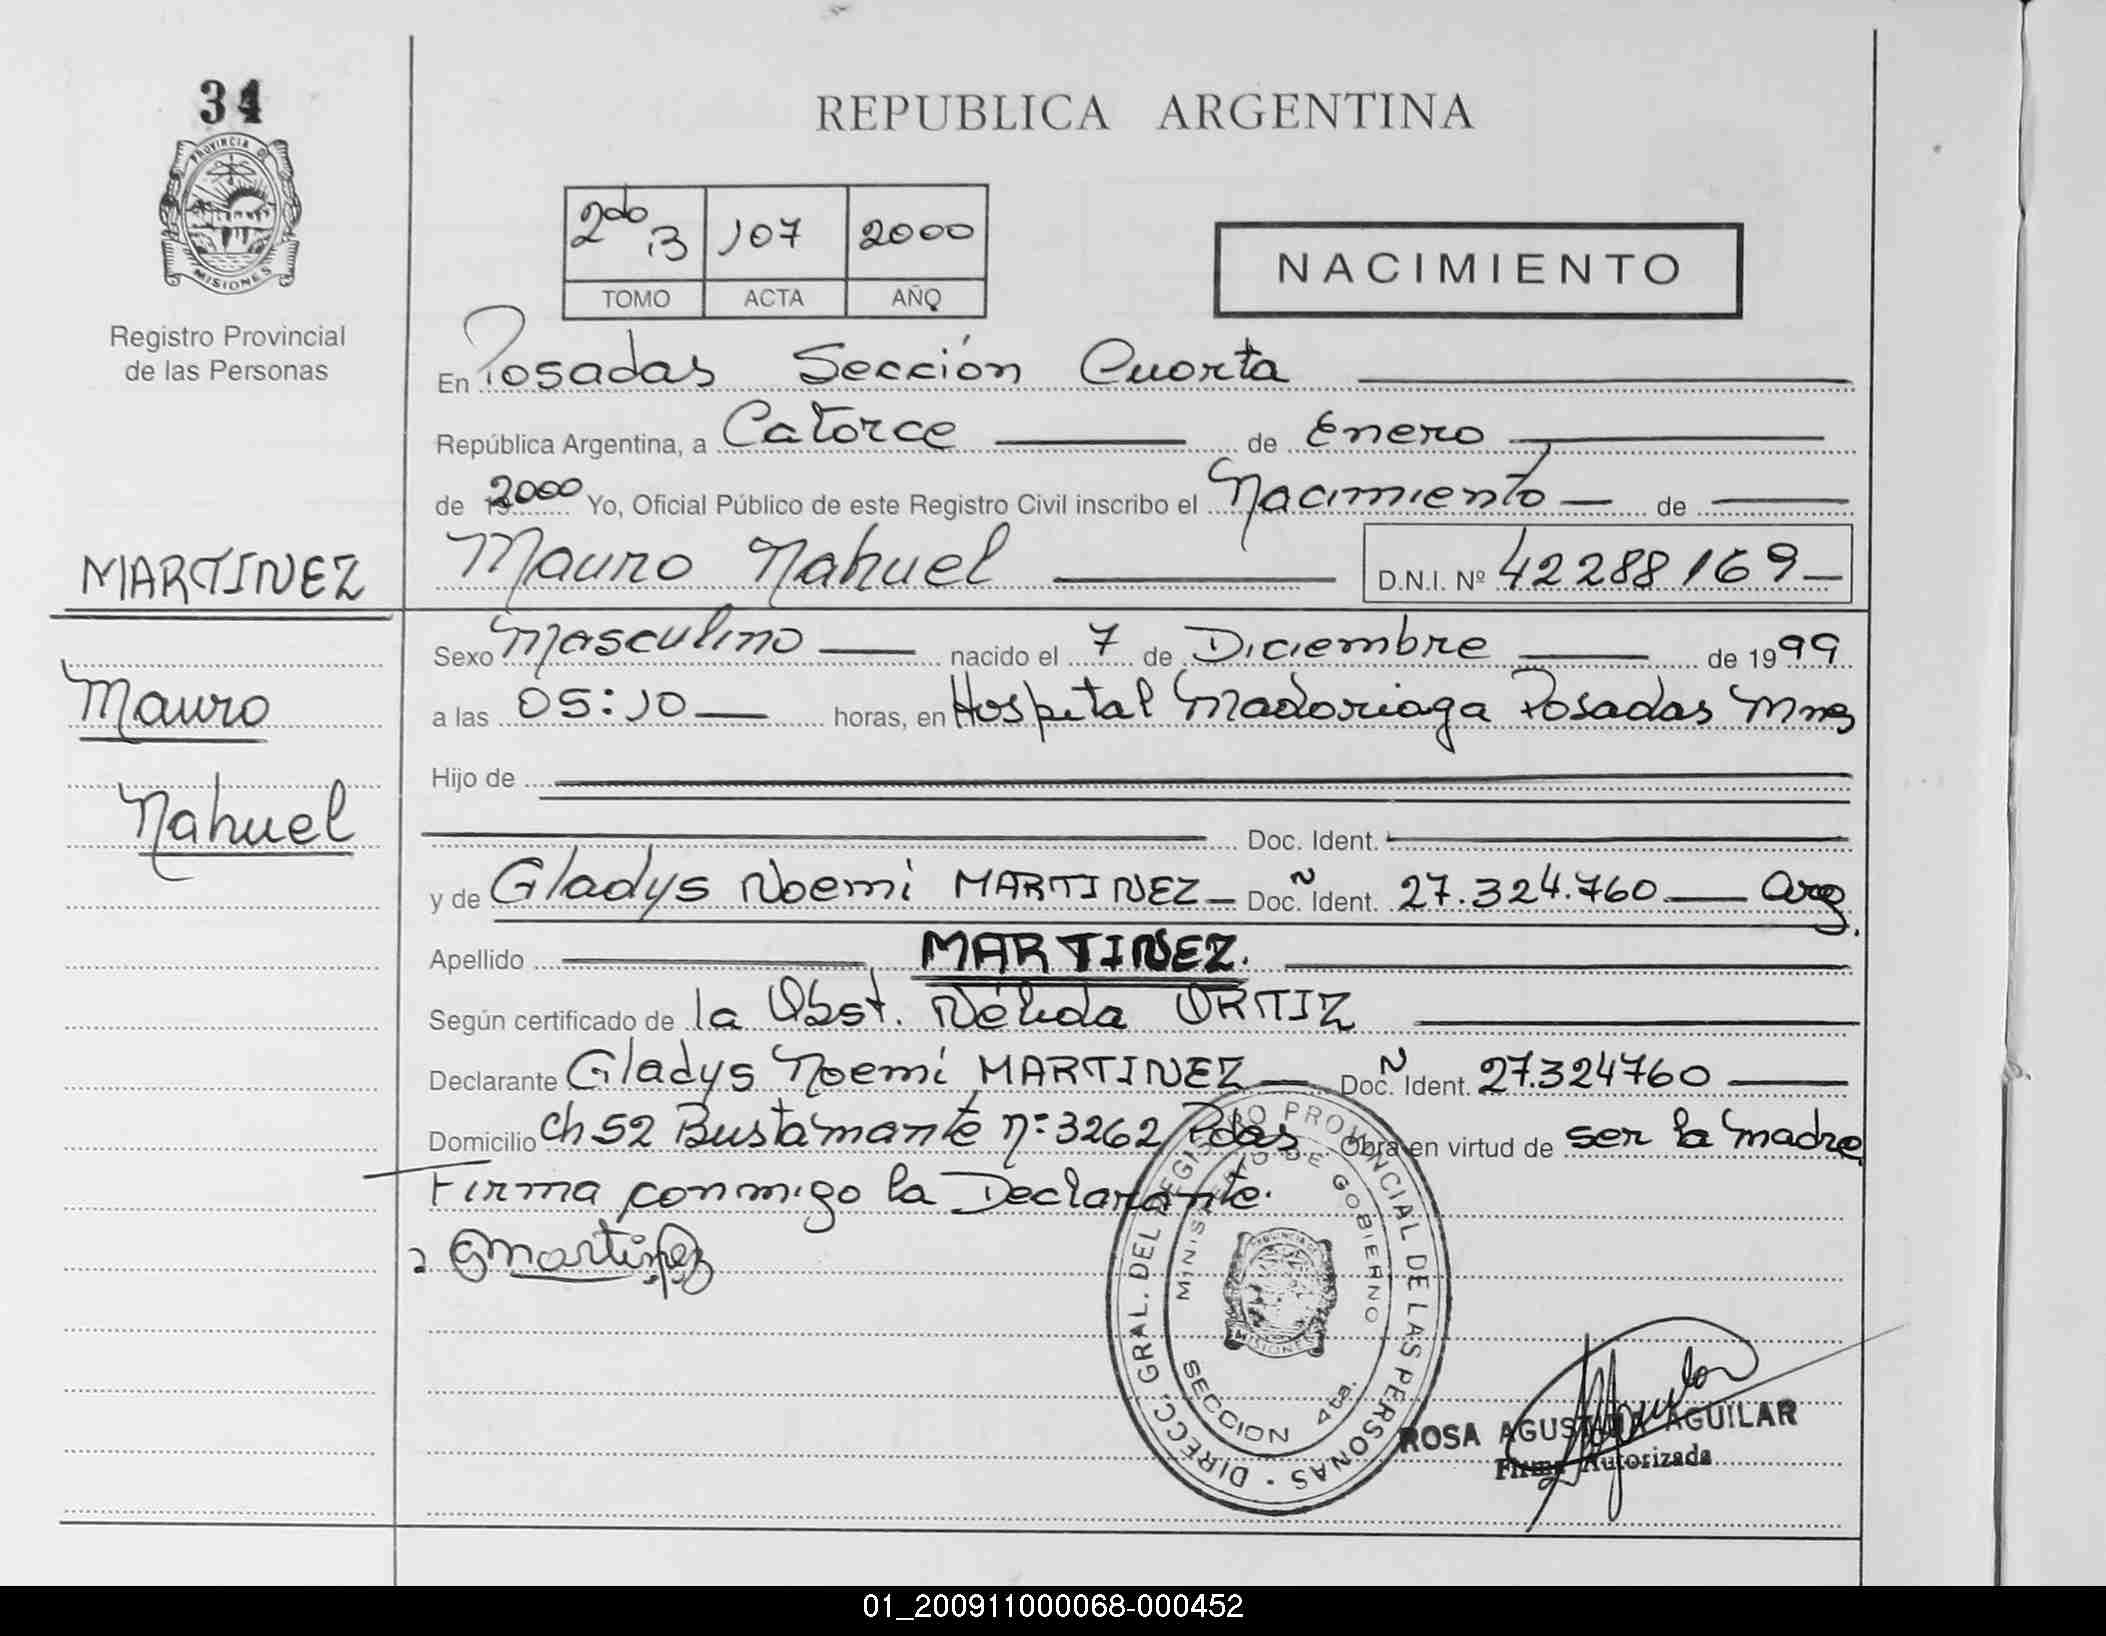 34
PROVINCIA DE
MISIONES
Registro Provincial
de las Personas
REPUBLICA ARGENTINA
2do B 107 2000
TOMO ACTA AÑO
NACIMIENTO
En Posadas Sección Cuarta
República Argentina, a Catorce de Enero
de 2000 Yo, Oficial Público de este Registro Civil inscribo el Nacimiento de
Mauro Nahuel D.N.I. Nº 42288169
MARTINEZ
Mauro
Nahuel
Sexo Masculino nacido el 7 de Diciembre de 1999
a las 05:10 horas, en Hospital Madoriaga Posadas Mnes
Hijo de
Doc. Ident.
y de Gladys Noemi MARTINEZ Doc. Ñ Ident. 27.324.760 Arg.
Apellido MARTINEZ.
Según certificado de la Obst. Nélida ORTIZ
Declarante Gladys Noemi MARTINEZ Doc. Ñ Ident. 27.324760
Domicilio Ch 52 Bustamante nº 3262 Pdas Obra en virtud de ser la madre
Firma conmigo la Declarante.
GMartinez
DIRECC. GRAL. DEL REGISTRO PROVINCIAL DE LAS PERSONAS
MINISTERIO DE GOBIERNO
PROVINCIA DE
MISIONES
SECCION 4ta.
ROSA AGUSTINA AGUILAR
Firma Autorizada
01_200911000068-000452